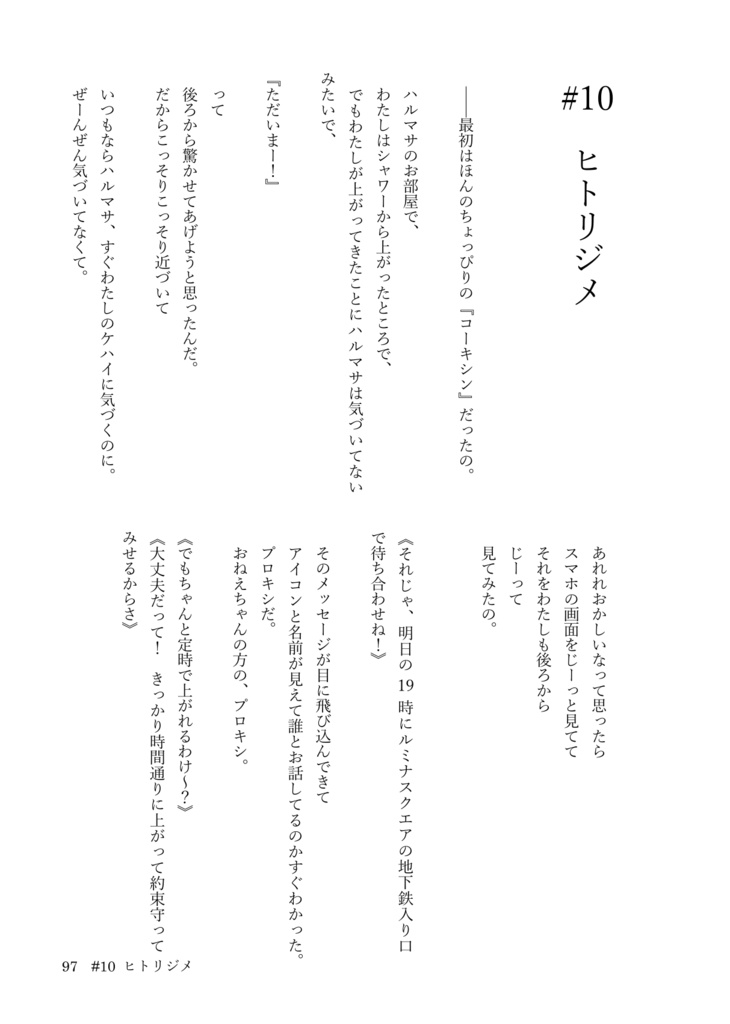 #10　ヒトリジメ
――最初はほんのちょっぴりの『コーキシン』だったの。
ハルマサのお部屋で、
わたしはシャワーから上がったところで、
でもわたしが上がってきたことにハルマサは気づいてない
みたいで、
『ただいまー！』
って
後ろから驚かせてあげようと思ったんだ。
だからこっそりこっそり近づいて
いつもならハルマサ、すぐわたしのケハイに気づくのに。
ぜーんぜん気づいてなくて。
あれれおかしいなって思ったら
スマホの画面をじーっと見てて
それをわたしも後ろから
じーって
見てみたの。
《それじゃ、明日の 19 時にルミナスクエアの地下鉄入り口
で待ち合わせね！》
そのメッセージが目に飛び込んできて
アイコンと名前が見えて誰とお話してるのかすぐわかった。
プロキシだ。
おねえちゃんの方の、プロキシ。
《でもちゃんと定時で上がれるわけ～？》
《大丈夫だって！　きっかり時間通りに上がって約束守って
みせるからさ》
97　#10 ヒトリジメ